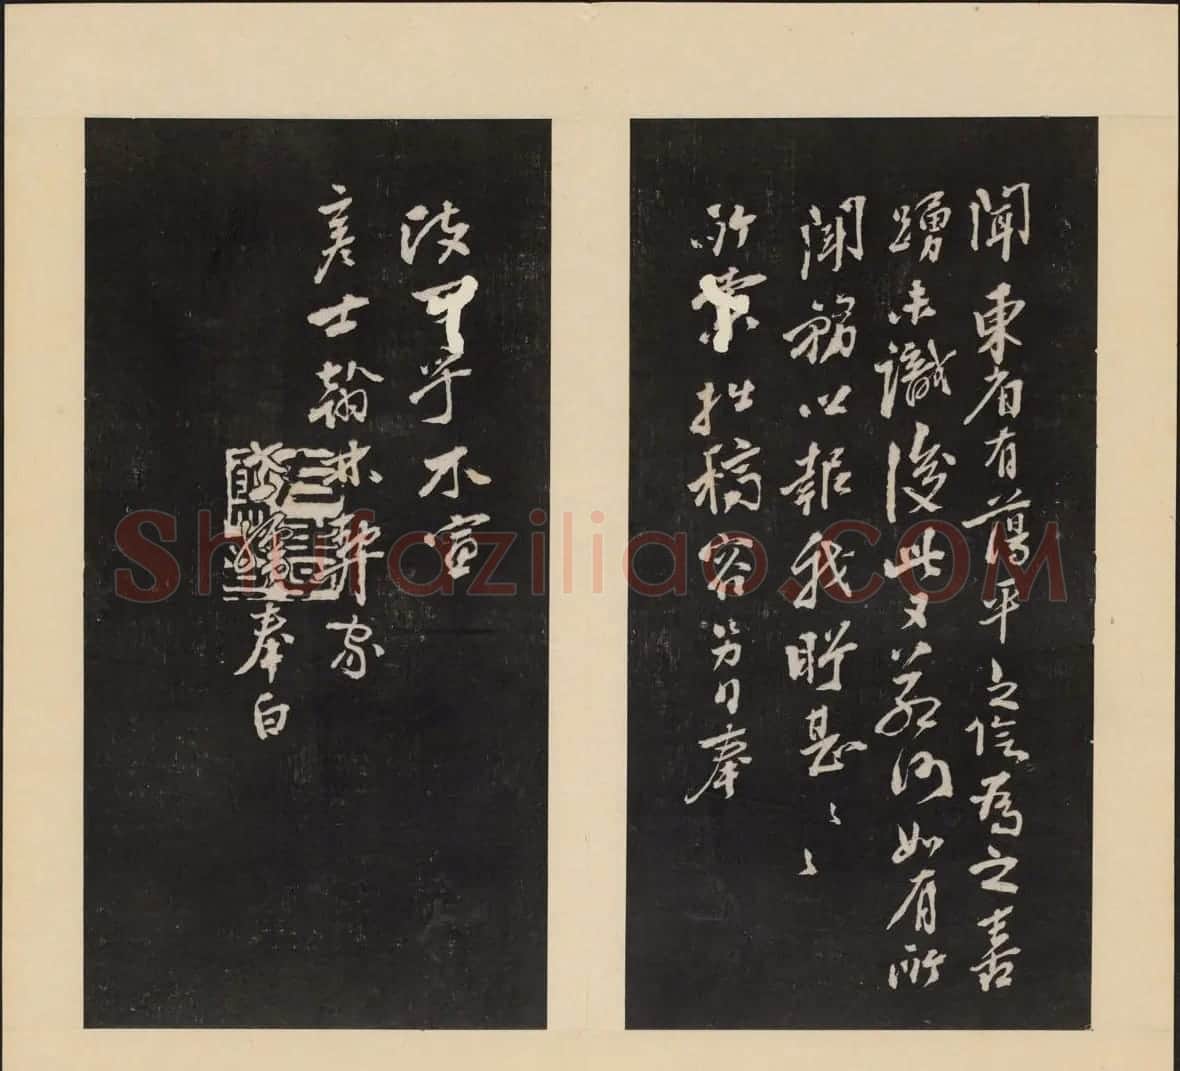 聞東省有蕩平之信為之喜
踴未識後此又若何如有所
聞務以報我盻甚〻〻
所索拙稿容另日奉
政可乎不宣
彥士翰林尊家
奉白
Shufaziliao.COM